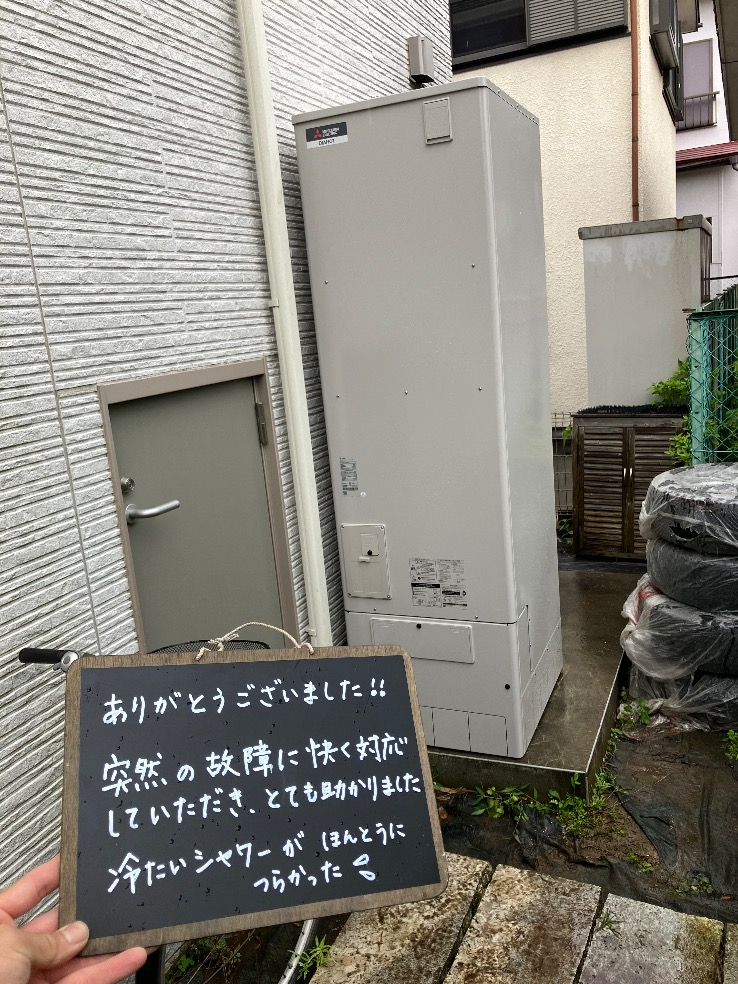 MITSUBISHI
ELECTRIC
DIAHOT
ありがとうございました!!
突然の故障に快く対応
していただき、とても助かりました
冷たいシャワーが ほんとうに
つらかった